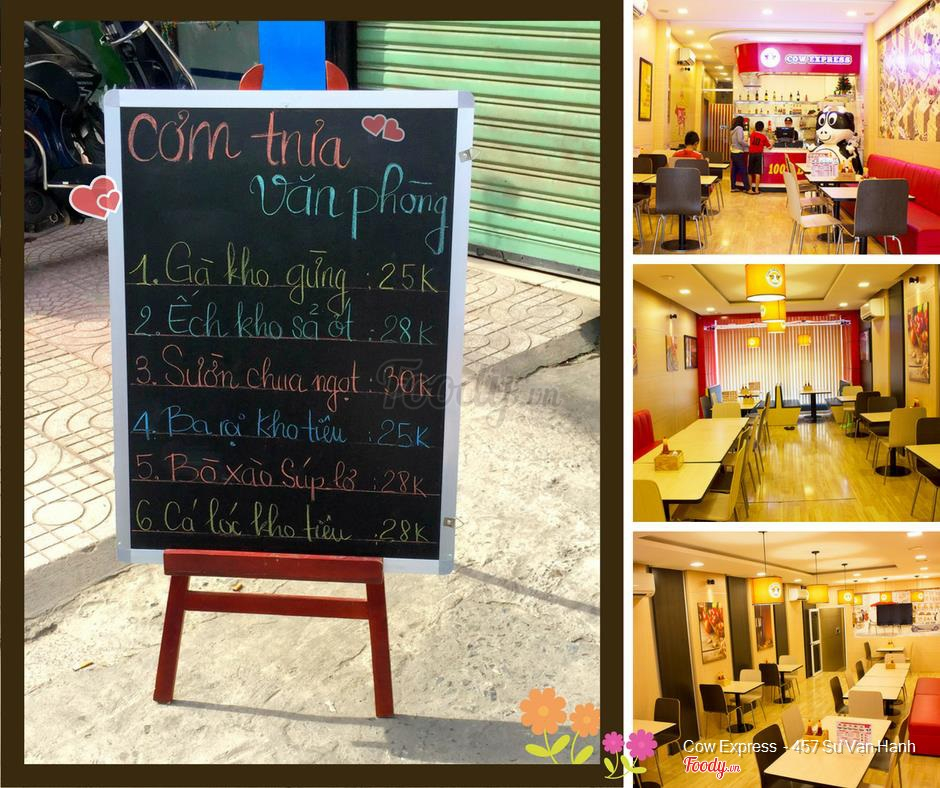 Cơm trưa
văn phòng
1. Gà kho gừng : 25K
2. Ếch kho sả ớt : 28K
3. Sườn chua ngọt : 30K
4. Ba rọi kho tiêu : 25K
5. Bò xào Súp lơ : 28K
6. Cá lóc kho tiêu : 28K
Foody.vn
COW EXPRESS
100%
Cow Express - 457 Sư Vạn Hạnh
Foody.vn